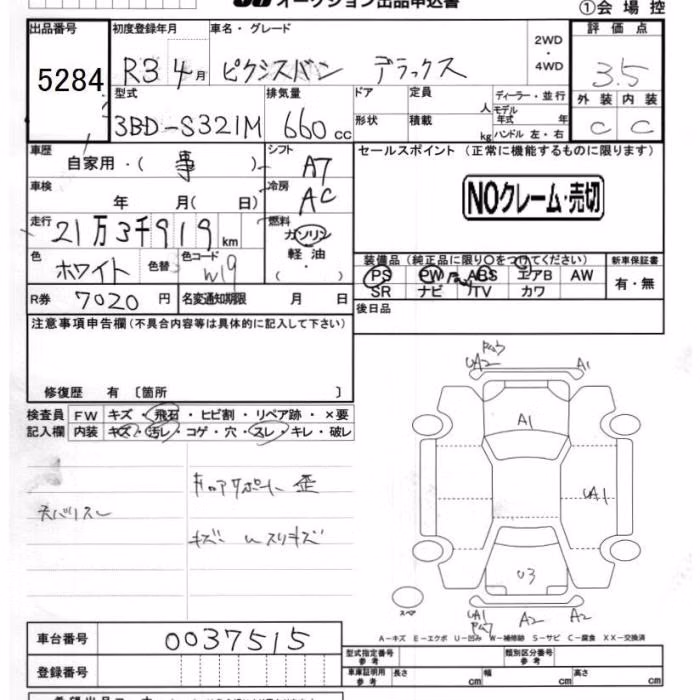 オークション出品申込書
①会場控
出品番号 初度登録年月 車名・グレード 2WD・4WD 評価点
5284 R3 4月 ピクシスバン デラックス 3.5
型式 排気量 ドア 定員 人 ディーラー・並行 外装 内装
3BD-S321M 660cc 形状 積載 kg モデル年式 年 ハンドル 左・右 C C
車歴 自家用・(事) シフト AT セールスポイント (正常に機能するものに限ります)
車検 年 月( 日) 冷房 AC NOクレーム・売切
走行 21万3千919km 燃料 ガソリン 軽油 ( )
装備品 (純正品に限り○をつけてください) 新車保証書
色 ホワイト 色替 色コード W19 PS PW ABS エアB AW 有・無
SR ナビ TV カワ
R券 7020円 名変通知期限 月 日 後日品
注意事項申告欄 (不具合内容等は具体的に記入して下さい)
修復歴 有 〔箇所 〕
検査員 FW キズ・飛石・ヒビ割・リペア跡・×要
記入欄 内装 キズ・汚レ・コゲ・穴・スレ・キレ・破レ
UA2 A1
A1
UA1
U3
スペア
UA1 A2 A2
キズ
A-キズ E-エクボ U-凹み W-補修跡 S-サビ C-腐食 XX-交換済
車台番号 0037515
登録番号
型式指定番号 参考 類別区分番号 参考
車庫証明用 参考 長さ cm 幅 cm 高さ cm